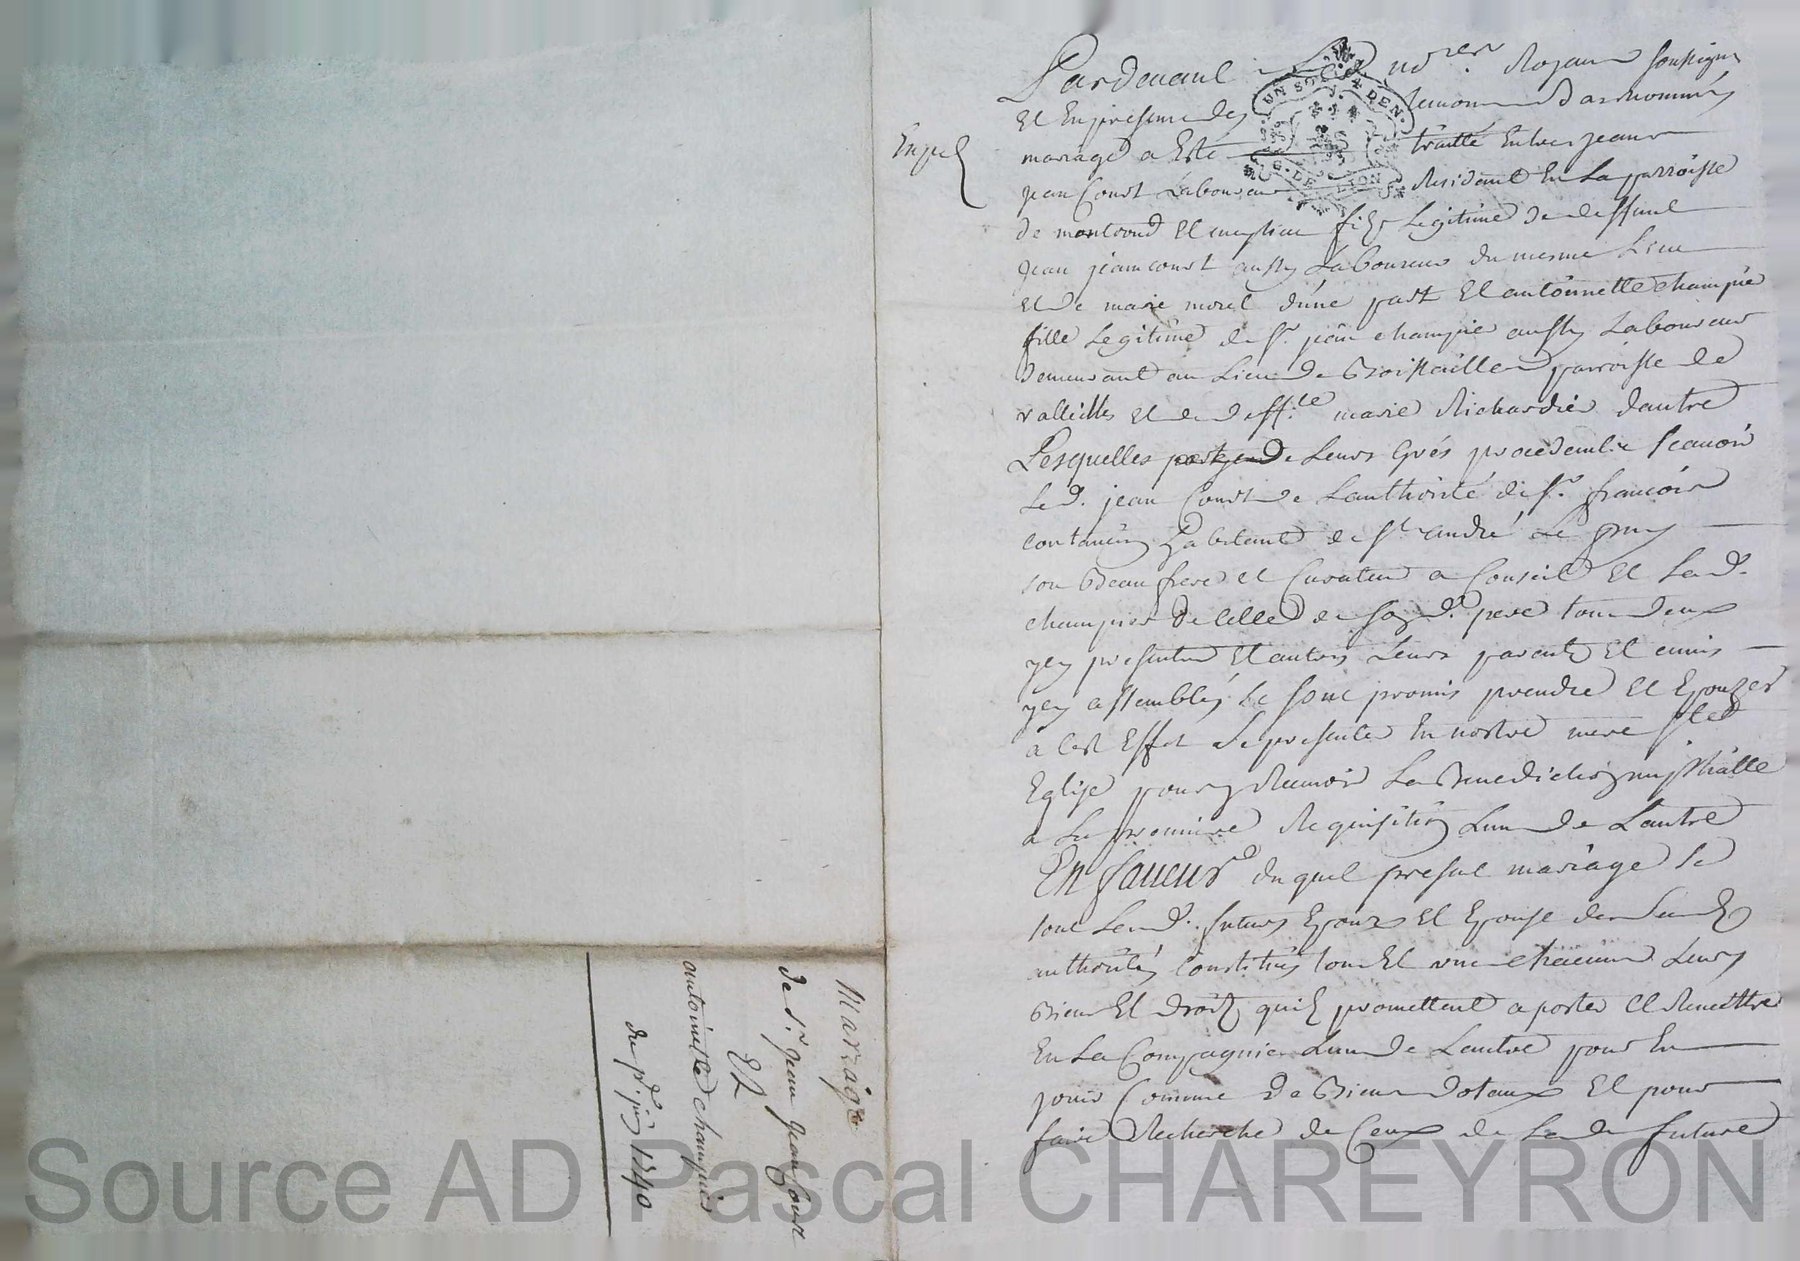 Pardevant Les no.res Royaux soussignes
Et En presence des temoins bas nommés
mariage a Esté traitté Entre jean
jean Court Laboureur Residant En La parroisse
de montrond Et fils Legitime de deffunt
jean jeancourt aussy Laboureur du mesme Lieu
et de marie morel d'une part Et antoinette champie
fille Legitime de Sr. jean champier aussy Laboureur
demeurant au Lieu de Boistaille parroisse de
valleilles et de deff.te marie Richardier dautre
Lesquelles parties de Leurs Grés procedantes scavoir
Led. jean Court de Lauthorité de Sr. francois
habitant de St andré Le puy
son Beaufrere et Curateur a Conseil Et Lad.
champier de Celle de sond. pere tous deux
yci presents Et autres Leurs parents Et amis
ycy assemblés se sont promis prendre Et Epouser
a Cest Effet se presenter En nostre mere Ste
Eglise pour y Recevoir La Benediction nuptialle
a La premiere Requisition Lun de Lautre
En faveur du quel present mariage se
sont Lesd. futurs Epoux Et Epouse
authorités Constitués tous Et un chacuns Leurs
Biens Et droits quils promettent aporter Et Remettre
En La Compagnie Lun de Lautre pour En
jouir Comme de Biens dotaux Et pour
faire Recherche de Ceux de Lade future
Exped
UN SOL 4 DEN.
G. DE LYON
Mariage
de Sr. jean jean Court
Et
antoinette champier
du pr. juin 1740
Source AD Pascal CHAREYRON